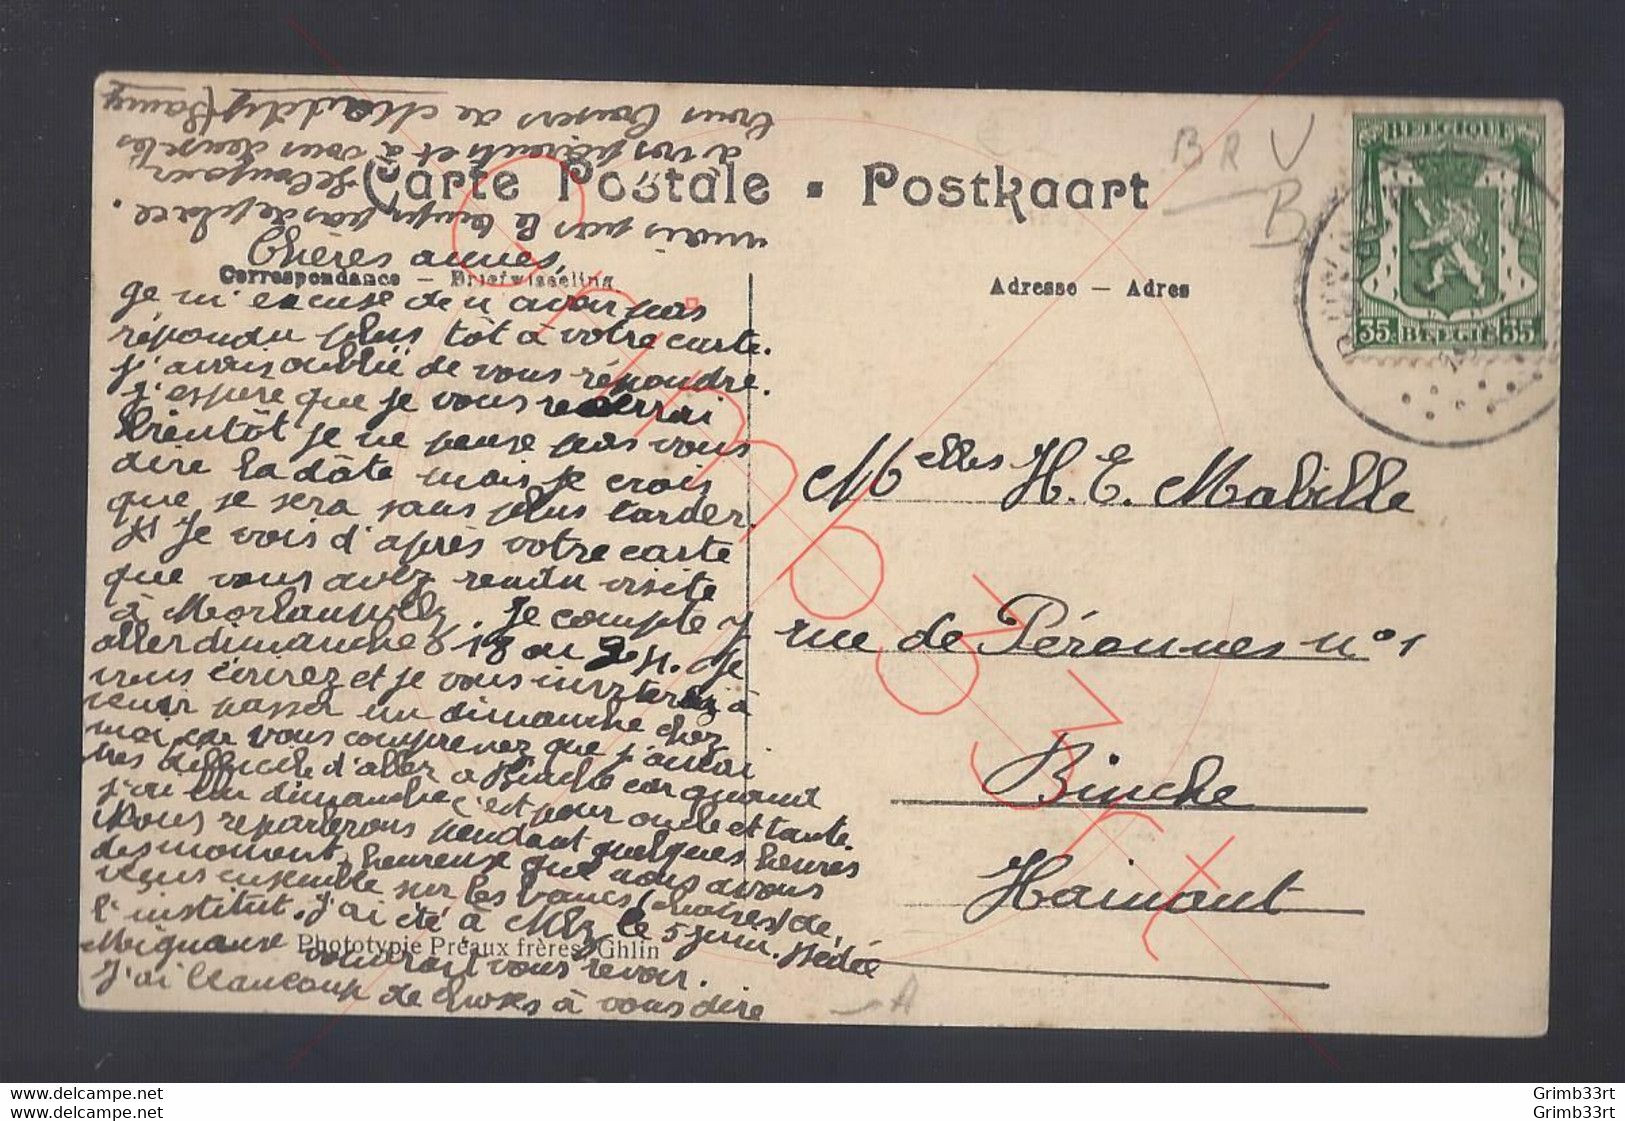 Carte Postale - Postkaart
Correspondance - Briefwisseling
Adresse - Adres
BELGIQUE
35 BELGIË 35
B R V
B
Chères amies,
Je m'excuse de n'avoir pas
répondu plus tôt à votre carte.
j'avais oublié de vous répondre.
J'espère que je vous reverrai
bientôt je ne pense pas vous
dire la dâte mais je crois
que je sera sans plus tarder.
Je vois d'après votre carte
que vous avez rendu visite
à Morlanwelz. Je compte y
aller dimanche 18 ou Je
vous écrirez et je vous inviterez à
venir passer un dimanche chez
moi car vous comprenez que j'aurai
très difficile d'aller à Binche car quand
j'ai un dimanche c'est pour oncle et tante.
Nous reparlerons pendant quelques heures
des moments heureuse que nous avons
vécus ensemble sur les bancs de
l'institut. J'ai été à le 5 juin. Dédée
Mignause voudrait vous revoir.
J'ai beaucoup de choses à vous dire
mais pas le temps pas de place.
Le bonjour
à vos parents et à vous deux les
bons baisers de
Phototypie Préaux frères, Ghlin
Melles H. E. Mabille
rue de Péronnes n° 1
Binche
Hainaut
A
Grimb33rt
delcampe.net Grimb33rt
delcampe.net Grimb33rt